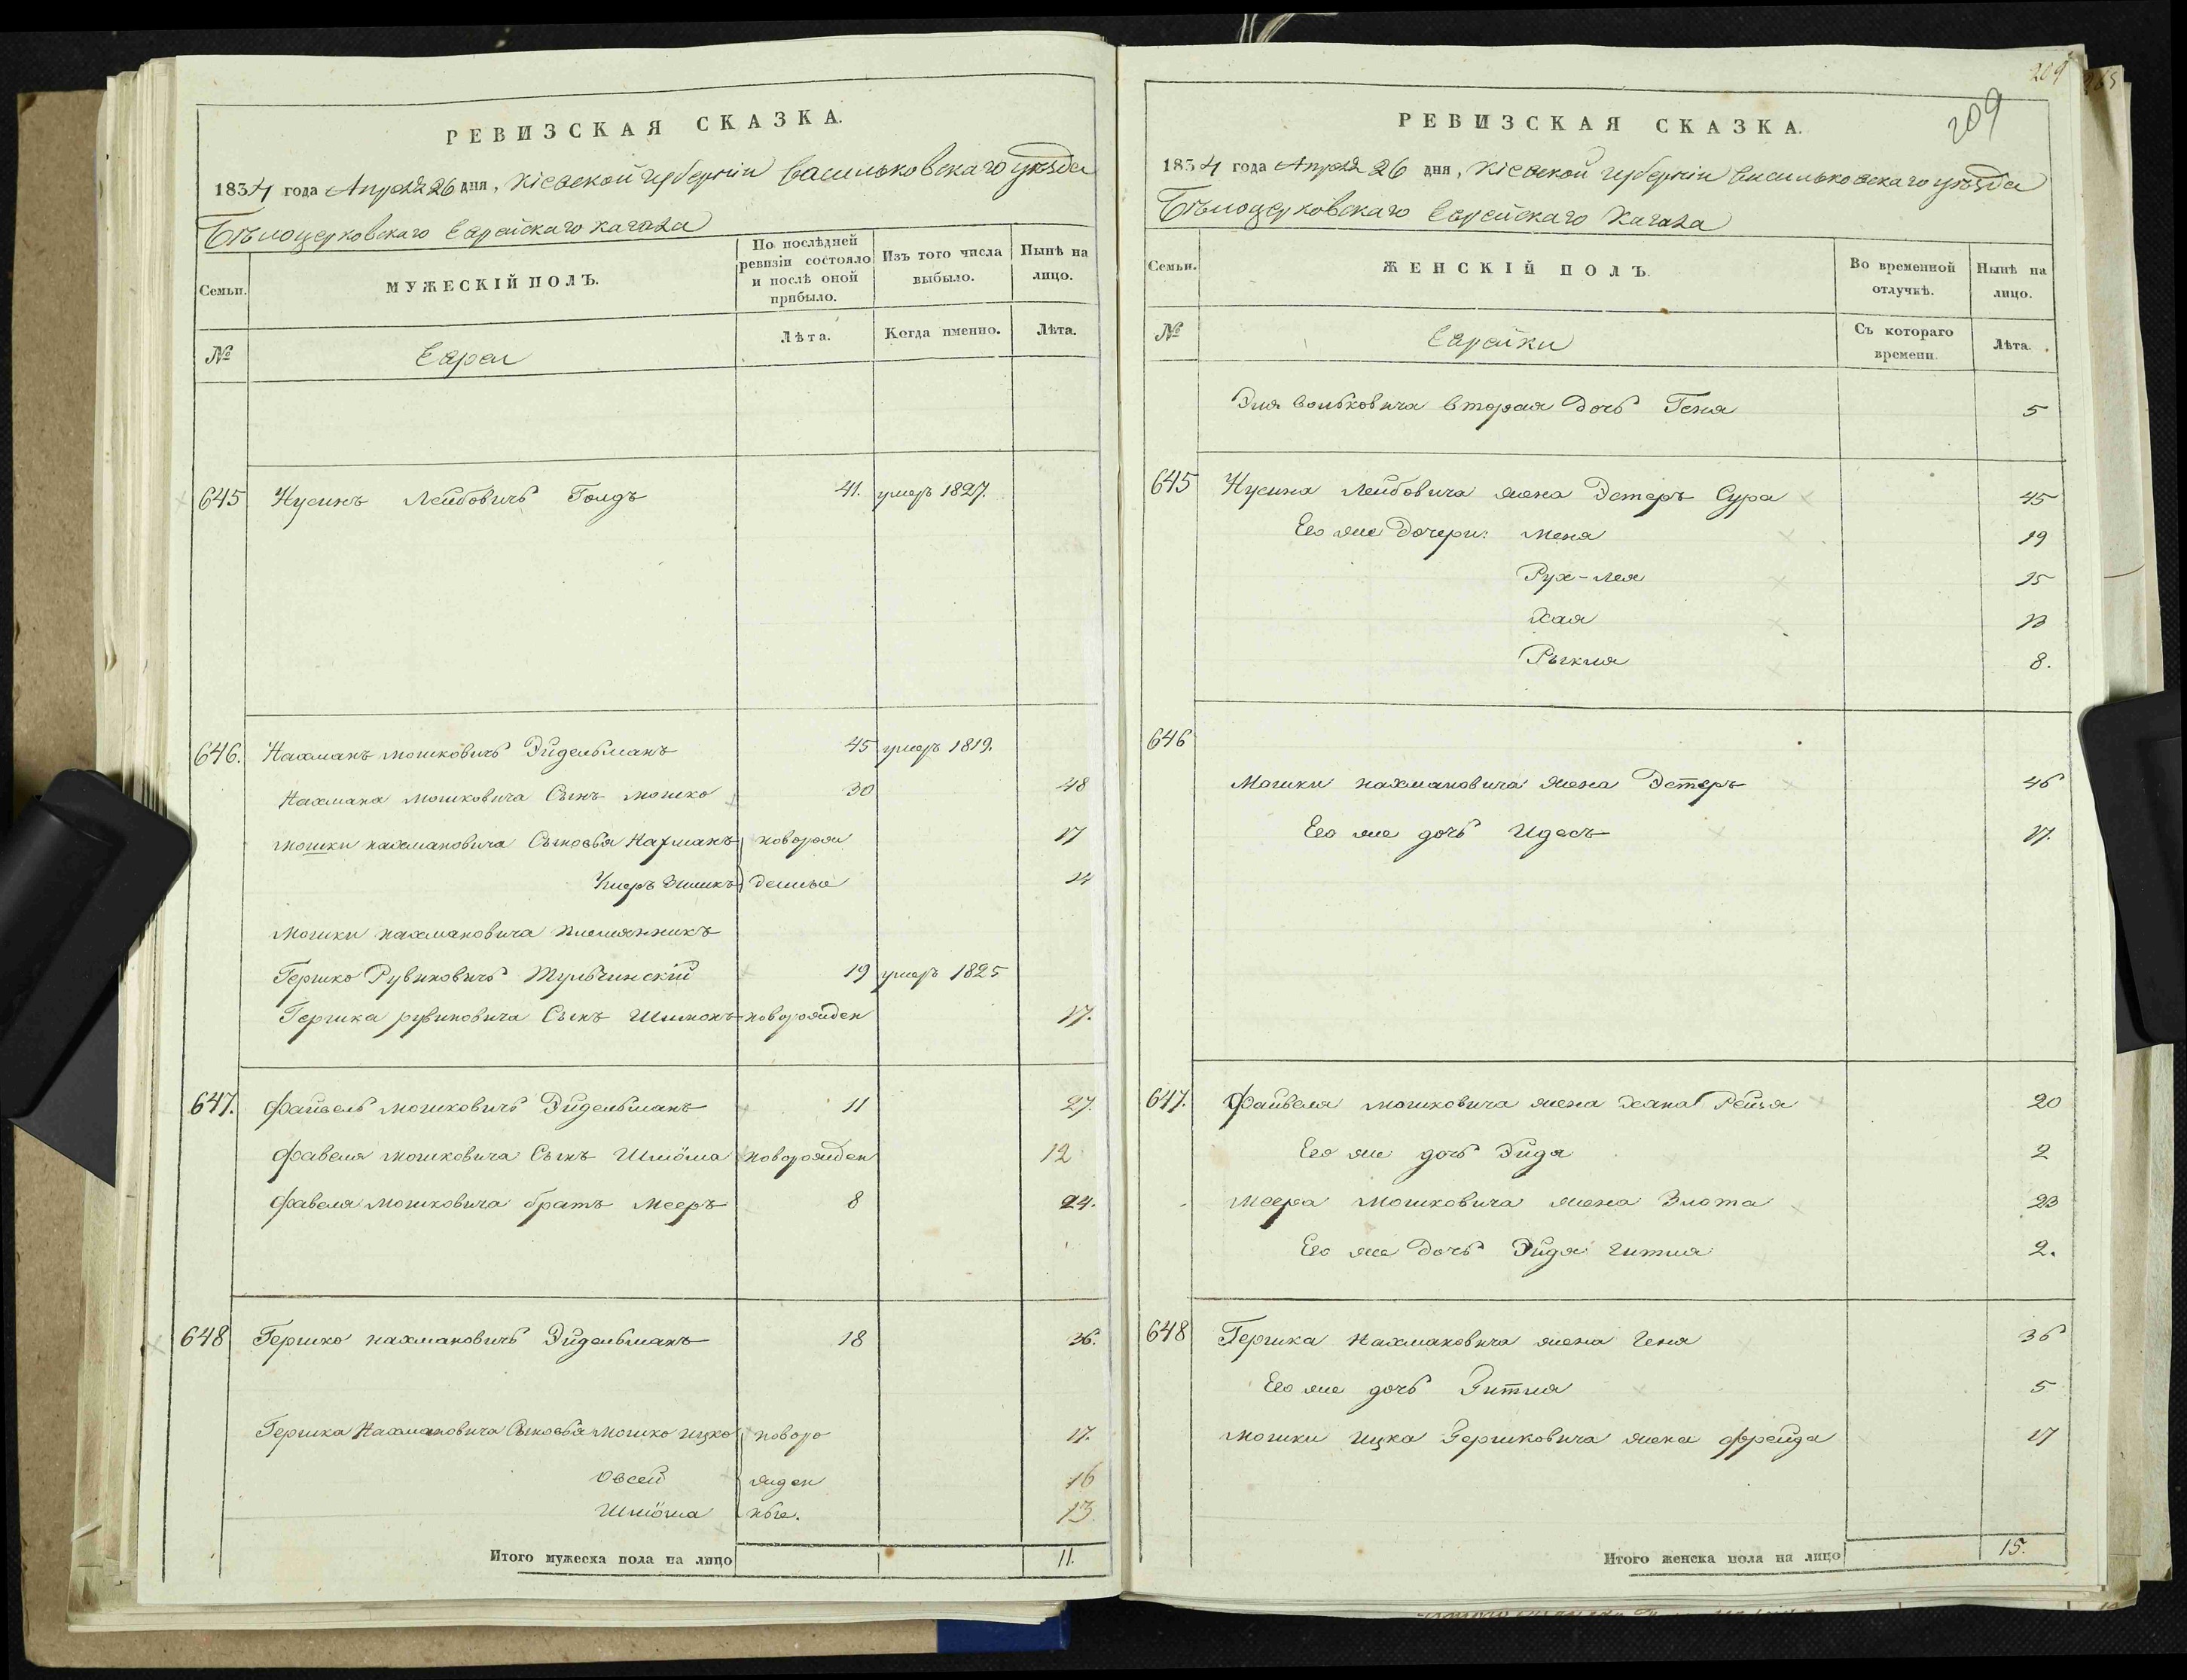 РЕВИЗСКАЯ СКАЗКА.
1834 года Апреля 26 дня, Кіевской губерніи Васильковскаго уѣзда
Бѣлоцерковскаго Еврейскаго Кагала
Семьи.
МУЖЕСКІЙ ПОЛЪ.
По послѣдней ревизіи состояло и послѣ оной прибыло.
Изъ того числа выбыло.
Нынѣ на лицо.
№
Евреи
Лѣта.
Когда именно.
Лѣта.
645 Нусинъ Лейбовичъ Голдъ 41. умеръ 1827.
646. Нахманъ Мошковичъ Эйдельманъ 45 умеръ 1819.
Нахмана Мошковича Сынъ Мошко 30 48
Мошки Нахмановича Сыновья Нахманъ новорож 17
Зишкъ денные 14
Мошки Нахмановича племянникъ
Гершко Рувиновичъ Тульчинскій 19 умеръ 1825
Гершка Рувиновича Сынъ Шимонъ новорожден 17.
647. Файвель Мошковичъ Эйдельманъ 11 27.
Фавеля Мошковича Сынъ Шлёма новорожден 12
Фавеля Мошковича братъ Мееръ 8 24.
648 Гершко Нахмановичъ Эйдельманъ 18 36.
Гершка Нахмановича Сыновья Мошко Ицко новоро 17.
Овсей жден 16
Шлёма ные. 13.
Итого мужеска пола на лицо 11.
209
209
РЕВИЗСКАЯ СКАЗКА.
1834 года Апреля 26 дня, Кіевской губерніи Васильковскаго уѣзда
Бѣлоцерковскаго Еврейскаго Кагала
Семьи.
ЖЕНСКІЙ ПОЛЪ.
Во временной отлучкѣ.
Нынѣ на лицо.
№
Еврейки
Съ котораго времени.
Лѣта.
Вольковича вторая дочь Геня 5
645 Нусина Лейбовича жена Эстеръ Сура 45
Его же дочери: Меня 19
Рух-Лея 15
Хая 13
Рыкля 8.
646
Мошки Нахмановича жена Эстеръ 46
Его же дочь Идесъ 17.
647. Файвеля Мошковича жена Хана Рейзя 20
Его же дочь Эйдя 2
Меера Мошковича жена Злота 23
Его же дочь Эйдя Гитля 2.
648 Гершка Нахмановича жена Геня 36
Его же дочь Гитля 5
Мошки Ицка Гершковича жена Фрейда 17
Итого женска пола на лицо 15.